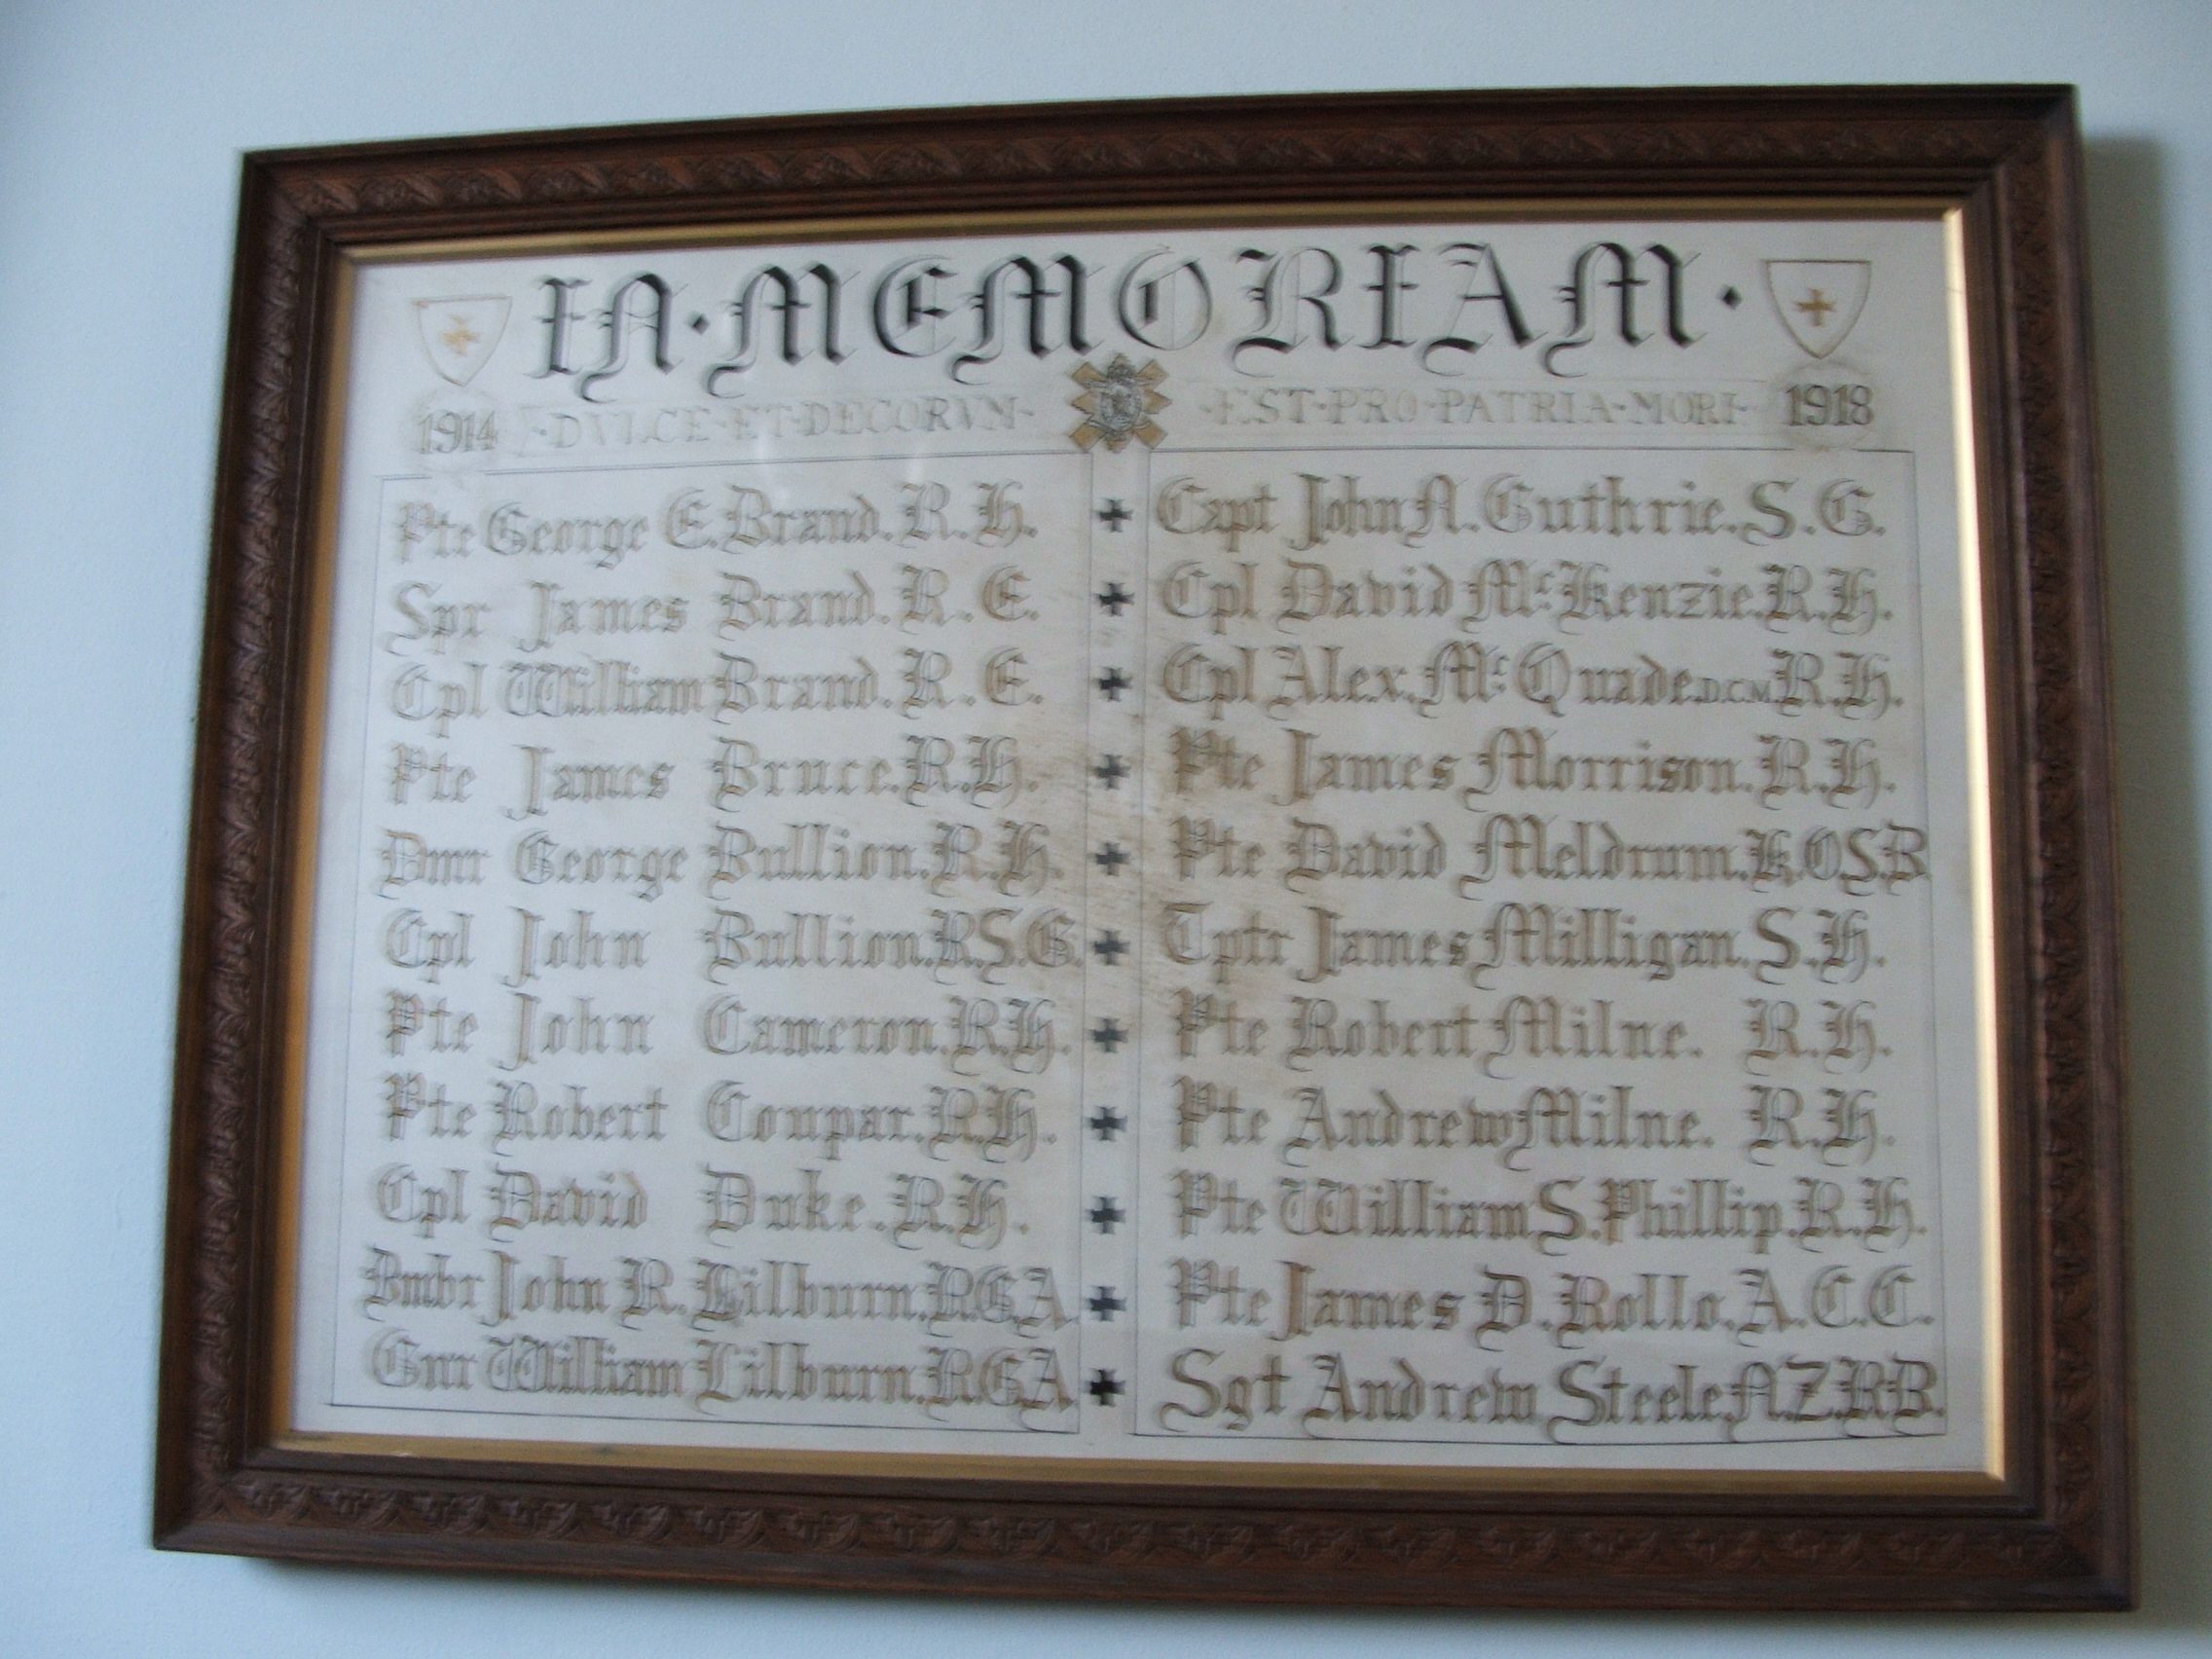 IN · MEMORIAM ·
1914 · DVLCE · ET · DECORVM · · EST · PRO · PATRIA · MORI · 1918
Pte George E. Brand. R. H.
Spr James Brand. R. E.
Cpl William Brand. R. E.
Pte James Bruce. R. H.
Dmr George Bullion. R. H.
Cpl John Bullion. R. S. G.
Pte John Cameron. R. H.
Pte Robert Coupar. R. H.
Cpl David Duke. R. H.
Bmbr John R. Lilburn. R. G. A.
Gnr William Lilburn. R. G. A
Capt John N. Guthrie. S. G.
Cpl David Mc Kenzie. R. H.
Cpl Alex. Mc Quade D.C.M. R. H.
Pte James Morrison. R. H.
Pte David Meldrum. K. O. S. B
Tptr James Milligan. S. H.
Pte Robert Milne. R. H.
Pte Andrew Milne. R. H.
Pte William S. Phillip. R. H.
Pte James D. Rollo. A. C. C.
Sgt Andrew Steele. N. Z. R. B.